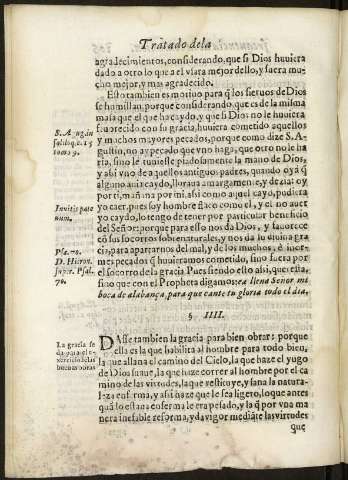 Tratado dela
agradecimientos, considerando, que si Dios huuiera
dado a otro lo que a el vuiera mejor dello, y fuera mu-
cho mejor, y mas agradecido.
Esto tambien es motiuo para q̃ los sieruos de Dios
se humillan, porque considerando, que es de la misma
masa que el que ha caydo, y que si Dios no le huuiera
fauorecido con su gracia, huuiera cometido aquellos
y muchos mayores pecados, porque como dize S. A-
gustin, no ay pecado que vno haga, que otro no le ha
ria, sino le tuuiesse piadosamente la mano de Dios,
y asi vno de aquellos antiguos padres, quando oya q̃
alguno auia caydo, lloraua amargamente, y dezia: oy
por ti, mañana por mi, asi como aquel cayo, pudiera
yo caer, pues soy hombre flaco como el, y el no auer
yo caydo, lo tengo de tener por particular beneficio
del Señor: porque para esto nos da Dios, y fauorece
cõ sus socorros sobrenaturales, y nos da su diuina gra
cia, para apartarnos del mal, y de los muchos, è inor-
mes pecados q̃ huuieramos cometido, sino fuera por
el socorro de la gracia. Pues siendo esto asi, que resta,
sino que con el Propheta digamos: ea llena Señor mi
boca de alabança, para que cante tu gloria todo el dia.
S. Augustin
soliloq. c. 15
tomo 9.
Psal. 70.
D. Hieron.
supr. Psal.
70.
§ IIII.
La gracia se
da para el e-
xercicio de las
buenas obras
DAse tambien la gracia para bien obrar: porque
ella es la que habilita al hombre para todo bien,
la que allana el camino del Cielo, la que haze el yugo
de Dios suaue, la que haze correr al hombre por el ca
mino de las virtudes, la que restituye, y sana la natura-
leza enferma, y asi haze que le sea ligero, lo que antes
quã lo estaua enferma le era pesado, y la q̃ por vna ma
nera inefable reforma, y da vigor mediãte las virtudes
que